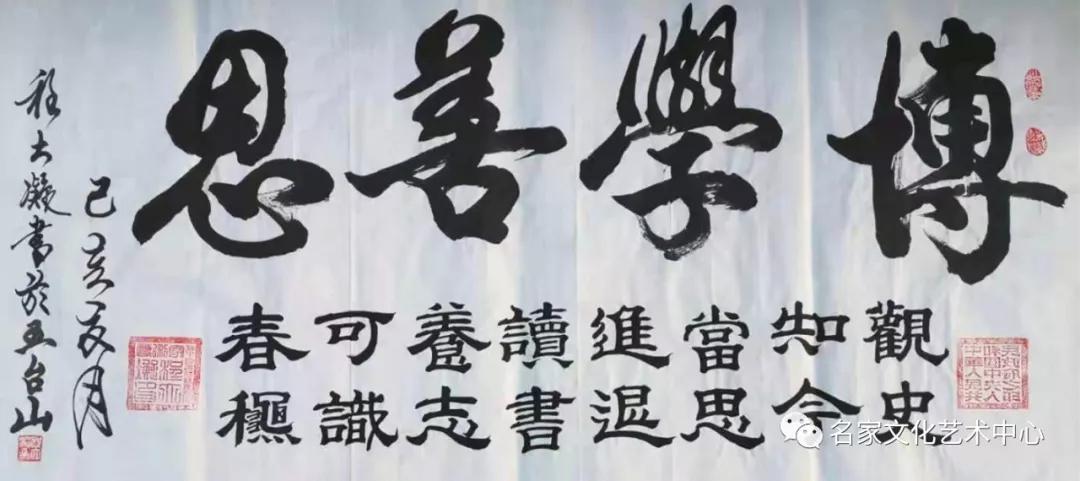 博學善思
觀史
知今
當思
進退
讀書
養志
可識
春穐
己亥夏月
書於五台山
名家文化艺术中心